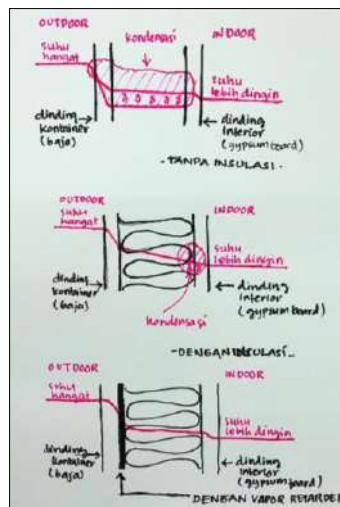 OUTDOOR
kondensasi
INDOOR
suhu
hangat
suhu
lebih dingin
dinding
kontainer
(baja)
dinding
interior
(gypsum board)
-TANPA INSULASI-
OUTDOOR
suhu
hangat
INDOOR
suhu
lebih dingin
dinding
kontainer
(baja)
kondensasi
dinding
interior
(gypsum board)
-DENGAN INSULASI-
OUTDOOR
suhu
hangat
INDOOR
suhu
lebih dingin
dinding
kontainer
(baja)
dinding
interior
(gypsum board)
DENGAN VAPOR RETARDER